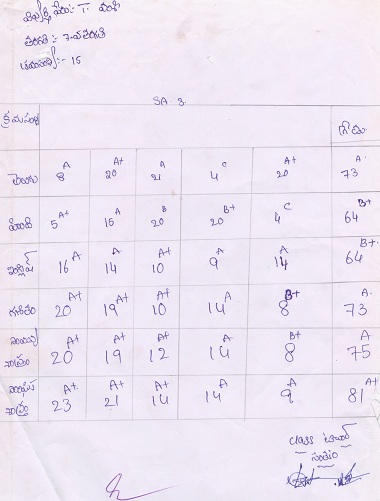 విద్యార్థి పేరు:- T. వంశీ
తరగతి :- 7వ తరగతి
క్రమసంఖ్య:- 15
SA 3.
క్రమసంఖ్య గ్రేడు
తెలుగు 8 A 20 A+ 21 A 4 C 20 A+ 73 A
హిందీ 5 A+ 15 A 20 B 20 B+ 4 C 64 B+
ఇంగ్లిష్ 16 A 14 A 10 A+ 9 A 14 A 64 B+
గణితం 20 A+ 19 A+ 10 A+ 14 A 8 B+ 73 A
సామాన్య శాస్త్రం 20 A+ 19 A+ 12 A+ 14 A 8 B+ 75 A
సాంఘిక శాస్త్రం 23 A+ 21 A+ 14 A+ 14 A 9 A 81 A+
class టీచర్
సంతకం